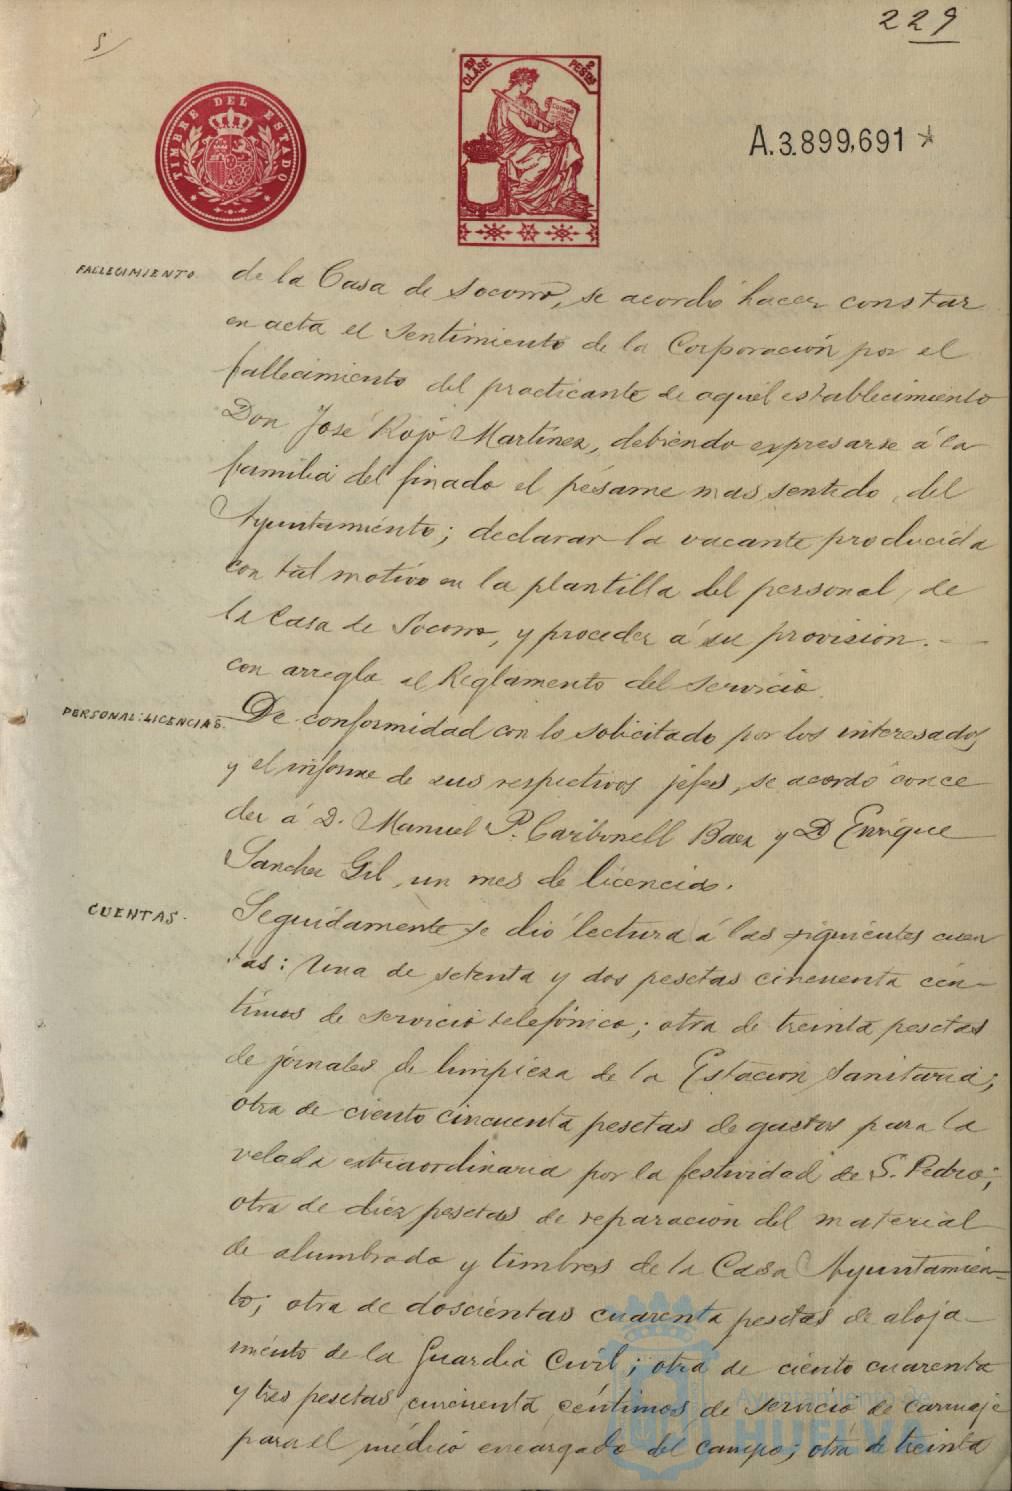 229
5/
TIMBRE DEL ESTADO
11ª CLASE
2 PESTAS
A.3.899,691 *
FALLECIMIENTO
de la Casa de Socorro, se acordó hacer constar
en acta el sentimiento de la Corporación por el
fallecimiento del practicante de aquel establecimiento
Don José Rojo Martínez, debiendo expresarse á la
familia del finado el pésame mas sentido del
Ayuntamiento; declarar la vacante producida
con tal motivo en la plantilla del personal, de
la Casa de Socorro, y proceder á su provisión. —
con arreglo al Reglamento del servicio.
PERSONAL: LICENCIAS.
De conformidad con lo solicitado por los interesados
y el informe de sus respectivos jefes, se acordó conce
der á D. Manuel P. Carbonell Baez y D Enrique
Sanchez Gil, un mes de licencia.
CUENTAS.
Seguidamente se dió lectura á las siguientes cuen
tas: Una de setenta y dos pesetas cincuenta cén-
timos de servicio telefónico; otra de treinta pesetas
de jornales de limpieza de la Estación Sanitaria;
otra de ciento cincuenta pesetas de gastos para la
velada extraordinaria por la festividad de S. Pedro;
otra de diez pesetas de reparación del material
de alumbrado y timbres de la Casa Ayuntamien-
to; otra de doscientas cuarenta pesetas de aloja-
miento de la Guardia Civil; otra de ciento cuarenta
y tres pesetas cincuenta céntimos de servicio de carruaje
para el médico encargado del campo; otra de treinta
Ayuntamiento de
HUELVA